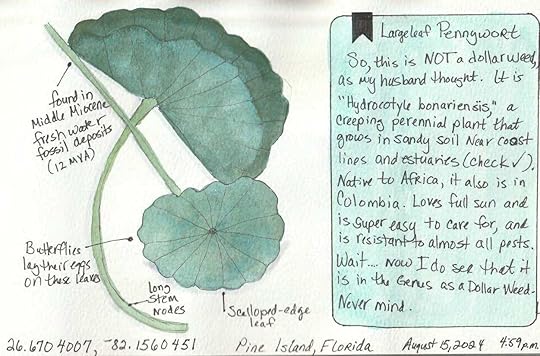 Largeleaf Pennywort
So, this is NOT a dollarweed,
as my husband thought. It is
"Hydrocotyle bonariensis," a
creeping perennial plant that
grows in sandy soil near coast
lines and estuaries (check ✓).
Native to Africa, it also is in
Colombia. Loves full sun and
is super easy to care for, and
is resistant to almost all pests.
Wait.... now I do see that it
is in the Genus as a Dollar Weed.
Never mind.
found in
Middle Miocene
fresh water
fossil deposits
(12 MYA)
Butterflies
lay their eggs
on these leaves
long
stem
nodes
Scalloped-edge
leaf
26.6704007, -82.1560451 Pine Island, Florida August 15, 2024 4:59 p.m.